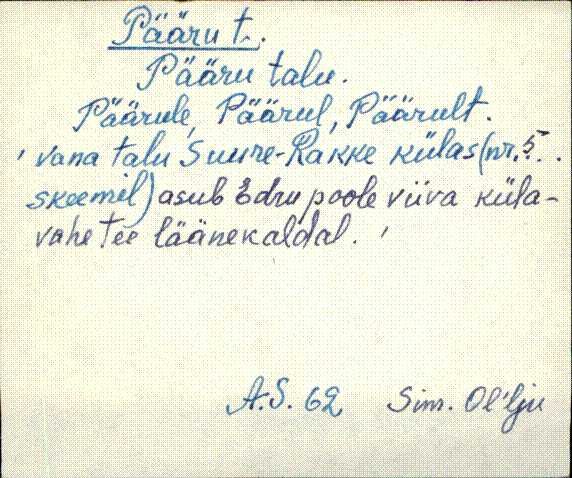 Pääru t.
Pääru talu.
Päärule, Päärul, Päärult.
' vana talu Suure-Rakke külas (nr. 5
skeemil) asub Edru poole viiva küla-
vahetee läänekaldal. '
A.S. 62 Sim. Ol'lju